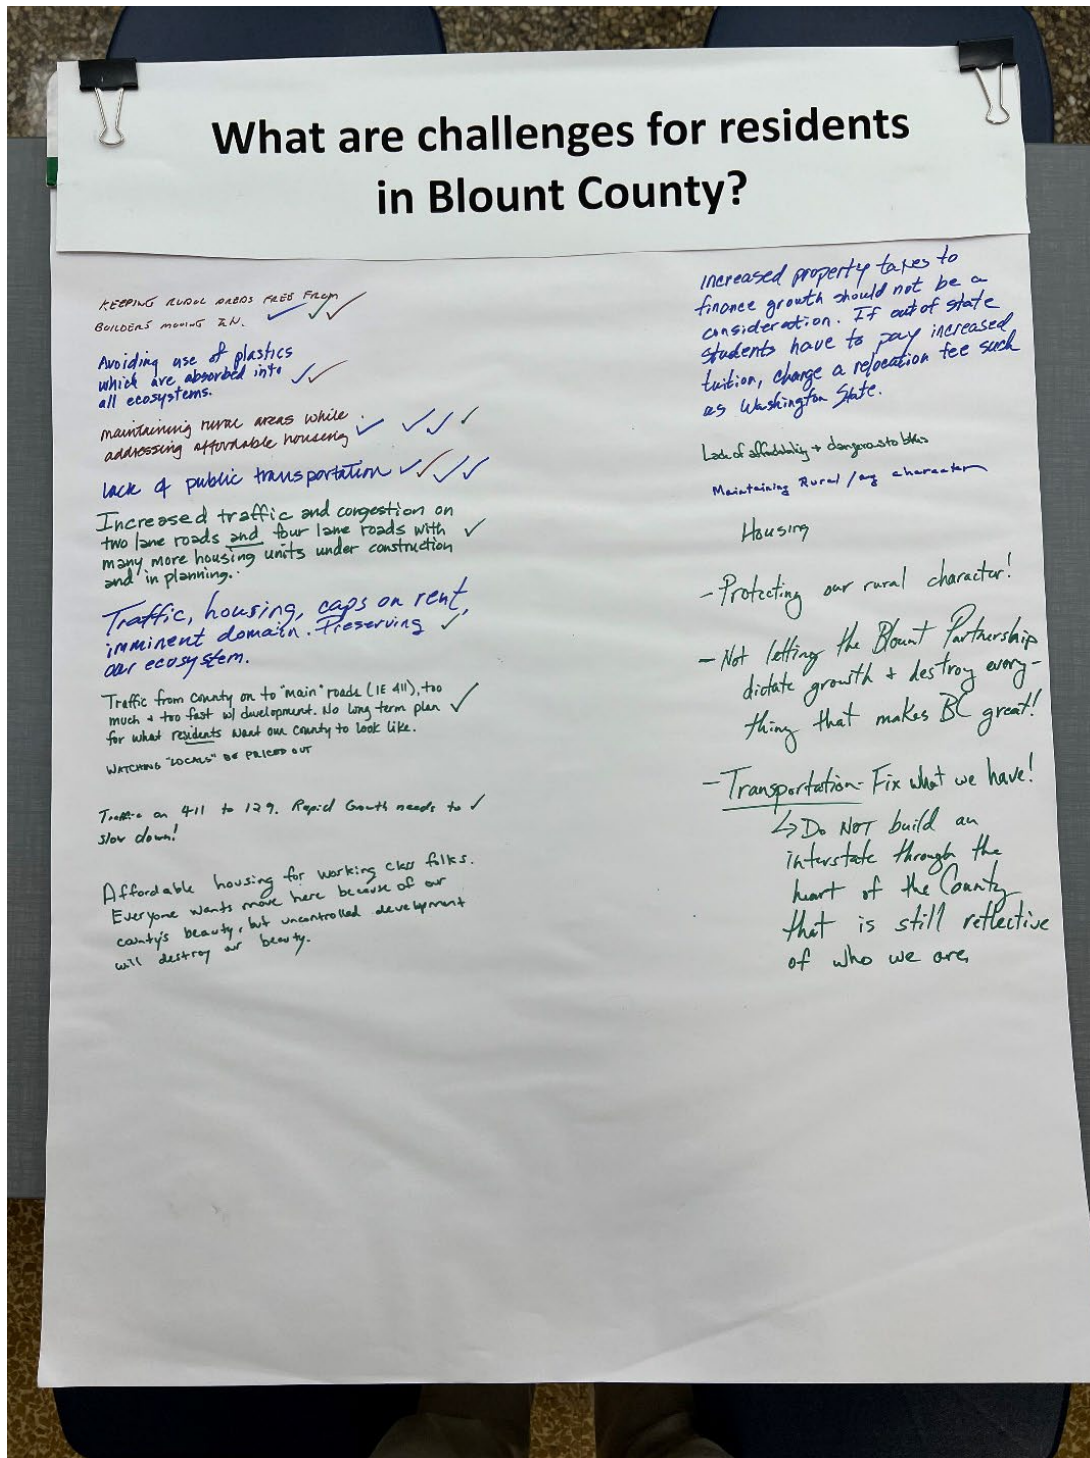 What are challenges for residents
in Blount County?
KEEPING RURAL AREAS FREE FROM
BUILDERS MOVING IN.
Avoiding use of plastics
which are absorbed into
all ecosystems.
maintaining rural areas while
addressing affordable housing
lack of public transportation
Increased traffic and congestion on
two lane roads and four lane roads with
many more housing units under construction
and in planning.
Traffic, housing, caps on rent,
imminent domain. Preserving
our ecosystem.
Traffic from County on to "main" roads (IE 411), too
much + too fast w/ development. No long term plan
for what residents want our county to look like.
WATCHING "LOCALS" BE PRICED OUT
Traffic on 411 to 129. Rapid Growth needs to
slow down!
Affordable housing for working class folks.
Everyone wants move here because of our
county's beauty, but uncontrolled development
will destroy our beauty.
increased property taxes to
finance growth should not be a
consideration. If out of state
students have to pay increased
tuition, charge a relocation fee such
as Washington State.
Lack of affordability + dangerous to bikes
Maintaining Rural / ag character
Housing
- Protecting our rural character!
- Not letting the Blount Partnership
dictate growth + destroy every-
thing that makes BC great!
- Transportation - Fix what we have!
↳ Do NOT build an
interstate through the
heart of the County
that is still reflective
of who we are.